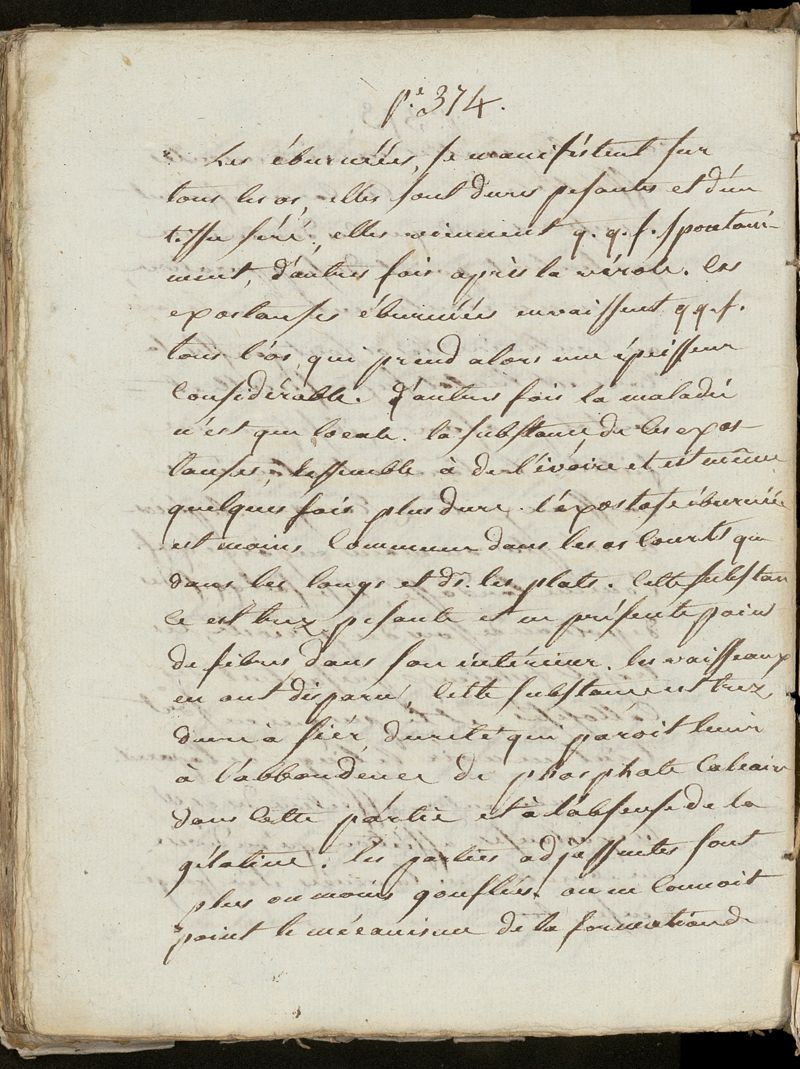 p.e 374.
Les éburnées, se manifestent sur
tous les os, elles sont dures pesantes et d'un
tissu séré, elles viennent q.q.f. spontané-
ment, d'autres fois après la vérole. les
exostauses éburnées envaissent q q.f.
tous l'os, qui prend alors une épaisseur
Considérable. d'autres fois la maladie
n'est que locale. la substance, de les exos-
tauses, ressemble à de l'ivoire et est même
quelques fois plus dure. l'exostose éburnée
est moins Commune dans les os Courts que
dans les longs et ds. les plats. Cette substan
ce est trez pesante et ne présente point
de fibres, dans son intérieur. les vaisseaux
en ont disparu, Cette substance est trez
dure à siér, dureté qui paroit tenir
à l'abbondence de phosphate Calcaire
dans Cette partie et à l'absense de la
gélatine. les parties adjassentes sont
plus ou moins gonflées. on ne Connoit
point le mécanisme de la formation de